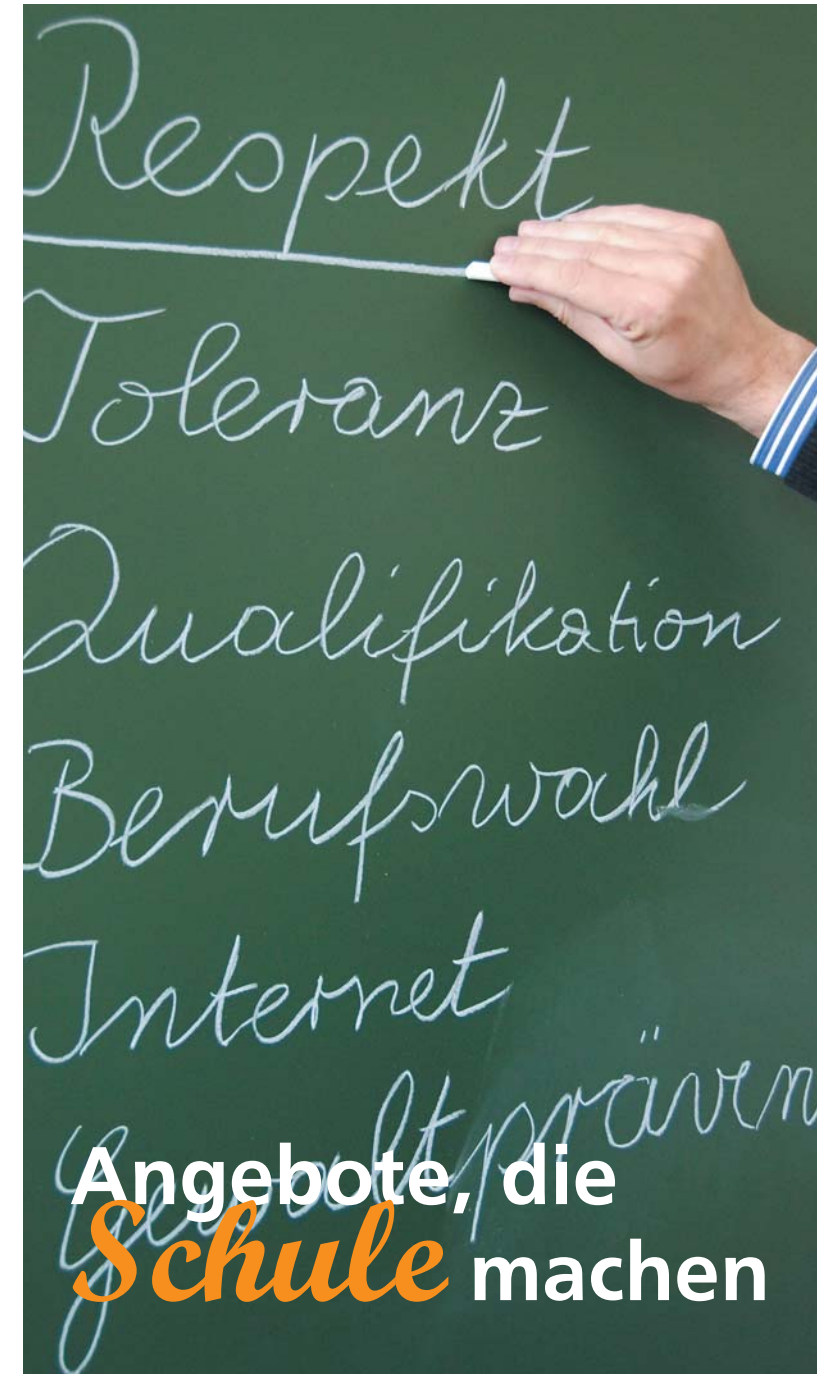 Respekt
Toleranz
Qualifikation
Berufswahl
Internet
Gewaltpräven
Angebote, die
Schule machen